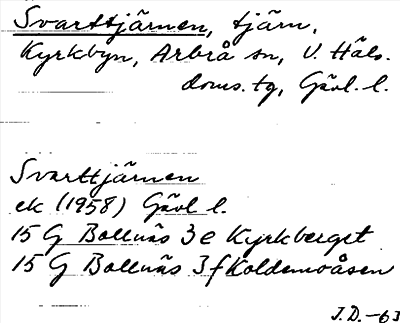 Svarttjärnen, tjärn,
Kyrkbyn, Arbrå sn, V. Häls.
doms.tg, Gävl. l.
Svarttjärnen
ek (1958) Gävl l.
15 G Bollnäs 3 e Kyrkberget
15 G Bollnäs 3 f Koldemoåsen
J.D. -63